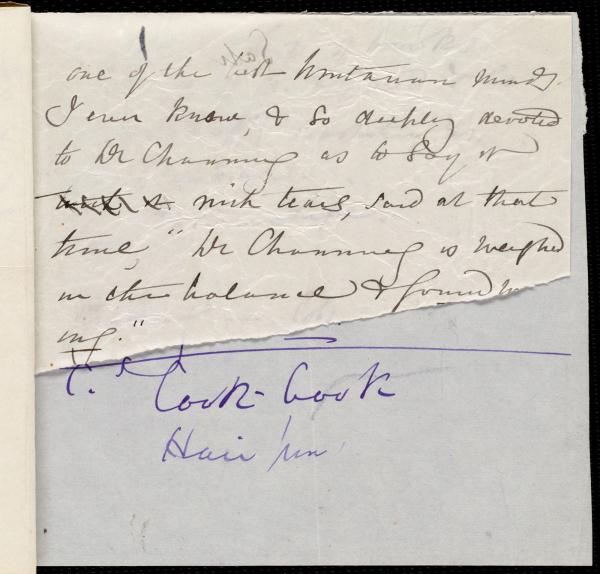 one of the best Unitarian minds
I ever knew, & so deeply devoted
to Dr Channing as to say it
with tears, said at that
time, "Dr Channing is weighed
in the balance & found w
ing."
Cook-book
Hair